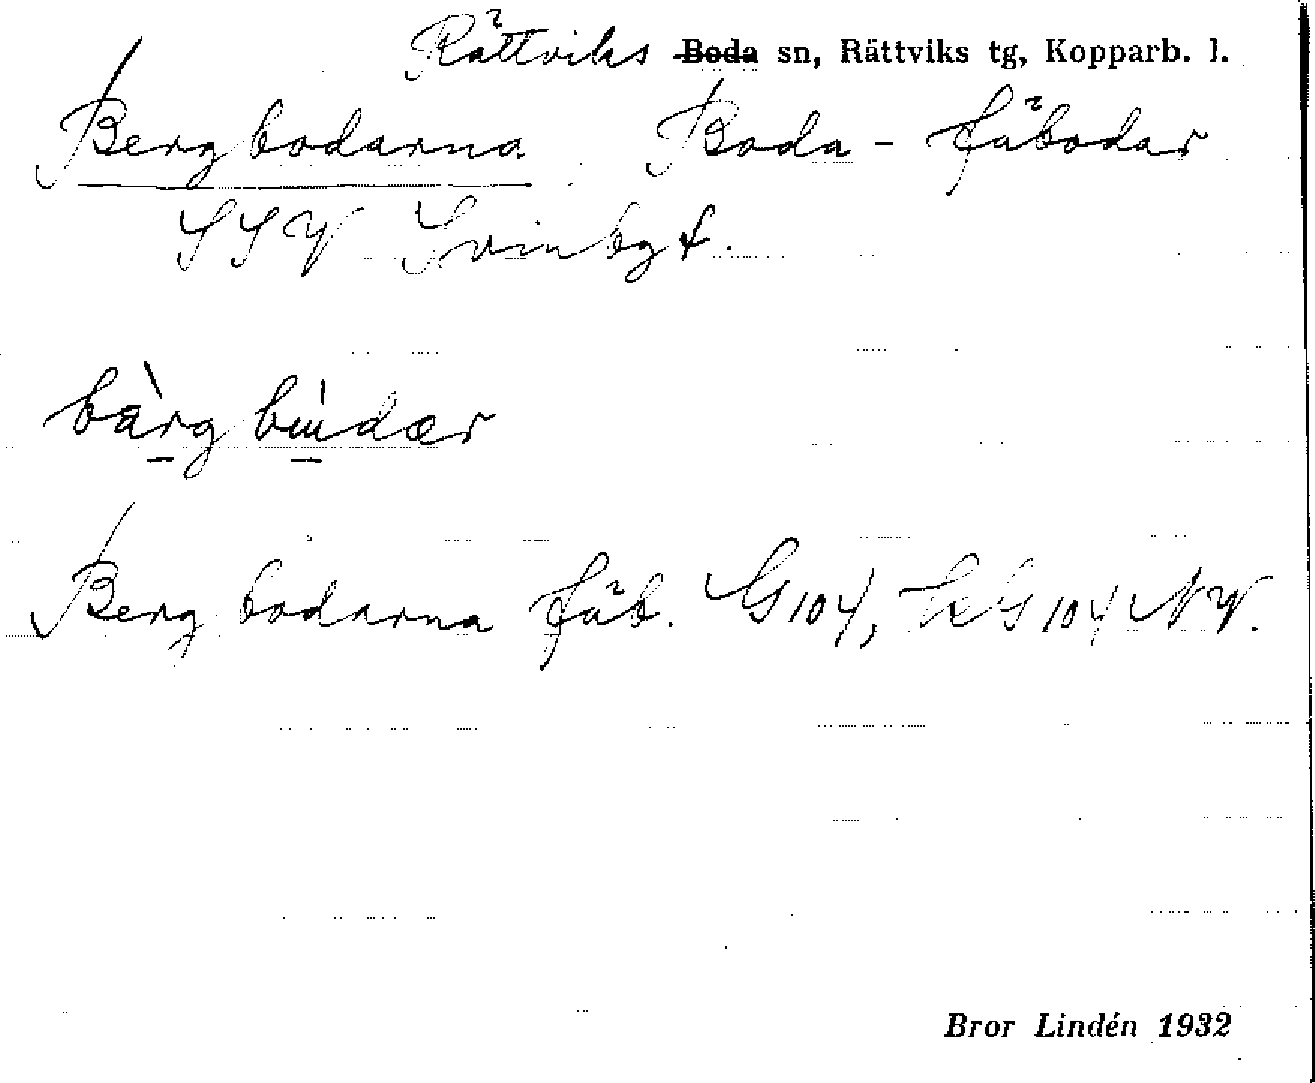 Rättviks Boda sn, Rättviks tg, Kopparb. l.
Bergbodarna. Boda - fäbodar
SSV
bàrg
Bergbodarna fäb. G 104, NV.
Bror Lindén 1932